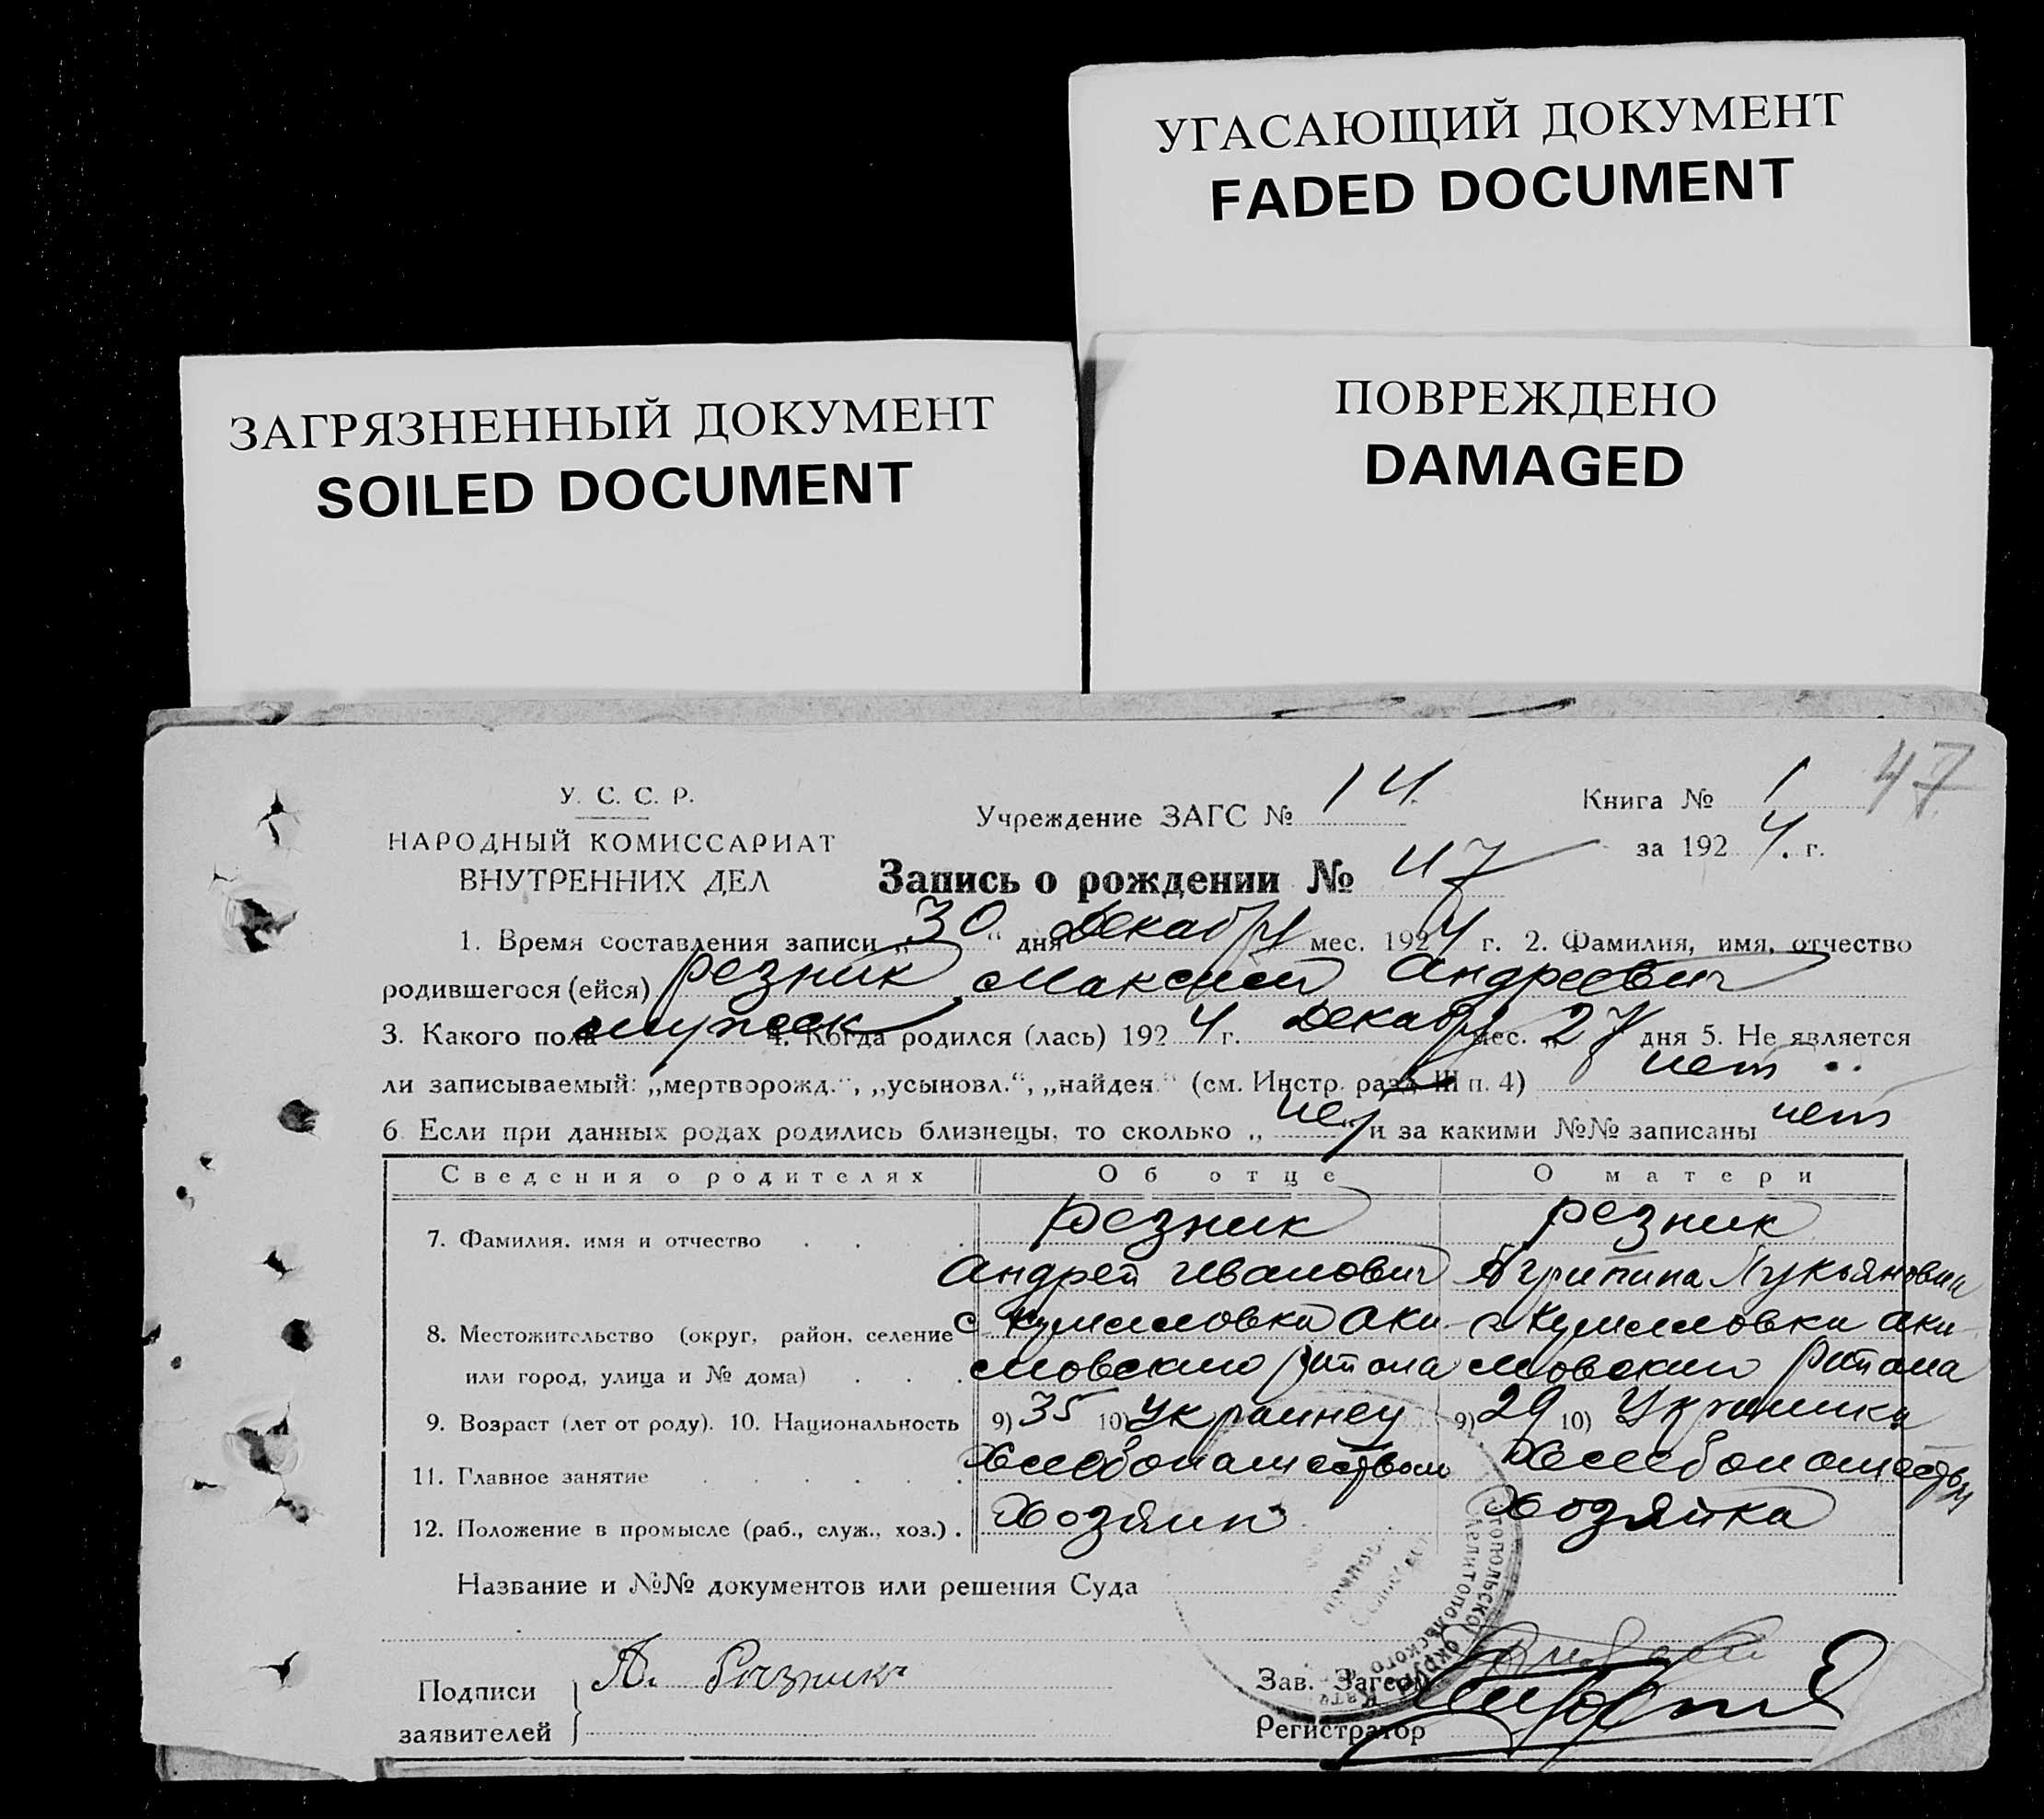 УГАСАЮЩИЙ ДОКУМЕНТ
FADED DOCUMENT
ЗАГРЯЗНЕННЫЙ ДОКУМЕНТ
SOILED DOCUMENT
ПОВРЕЖДЕНО
DAMAGED
47
У. С. С. Р.
НАРОДНЫЙ КОМИССАРИАТ
ВНУТРЕННИХ ДЕЛ
Учреждение ЗАГС № 14.
Книга № 1
за 192 4. г.
Запись о рождении № 47
1. Время составления записи „ 30 “ дня Декабр мес. 192 4 г. 2. Фамилия, имя, отчество
родившегося (ейся) Резник Максим Андреевич
3. Какого пола мужск 4. Когда родился (лась) 192 4 г. Декабр мес. „ 27 дня 5. Не является
ли записываемый: „мертворожд.“, „усыновл.“, „найден.“ (см. Инстр. разд. III п. 4) нет
6 Если при данных родах родились близнецы, то сколько „ нет “ и за какими №№ записаны нет
Сведения о родителях Об отце О матери
7. Фамилия, имя и отчество Резник Резник
Андрей Иванович Агрипина Лукьяновна
8. Местожительство (округ, район, селение с Аки- с Аки-
или город, улица и № дома) мовского района мовского района
9. Возраст (лет от роду). 10. Национальность 9) 35 10) Украинец 9) 29 10) Украинка
11. Главное занятие Хлебопашеством Хлебопашеством
12. Положение в промысле (раб., служ., хоз.) . Хозяин Хозяйка
Название и №№ документов или решения Суда
Подписи
заявителей
А. Резник
Зав. Загсом
Регистратор